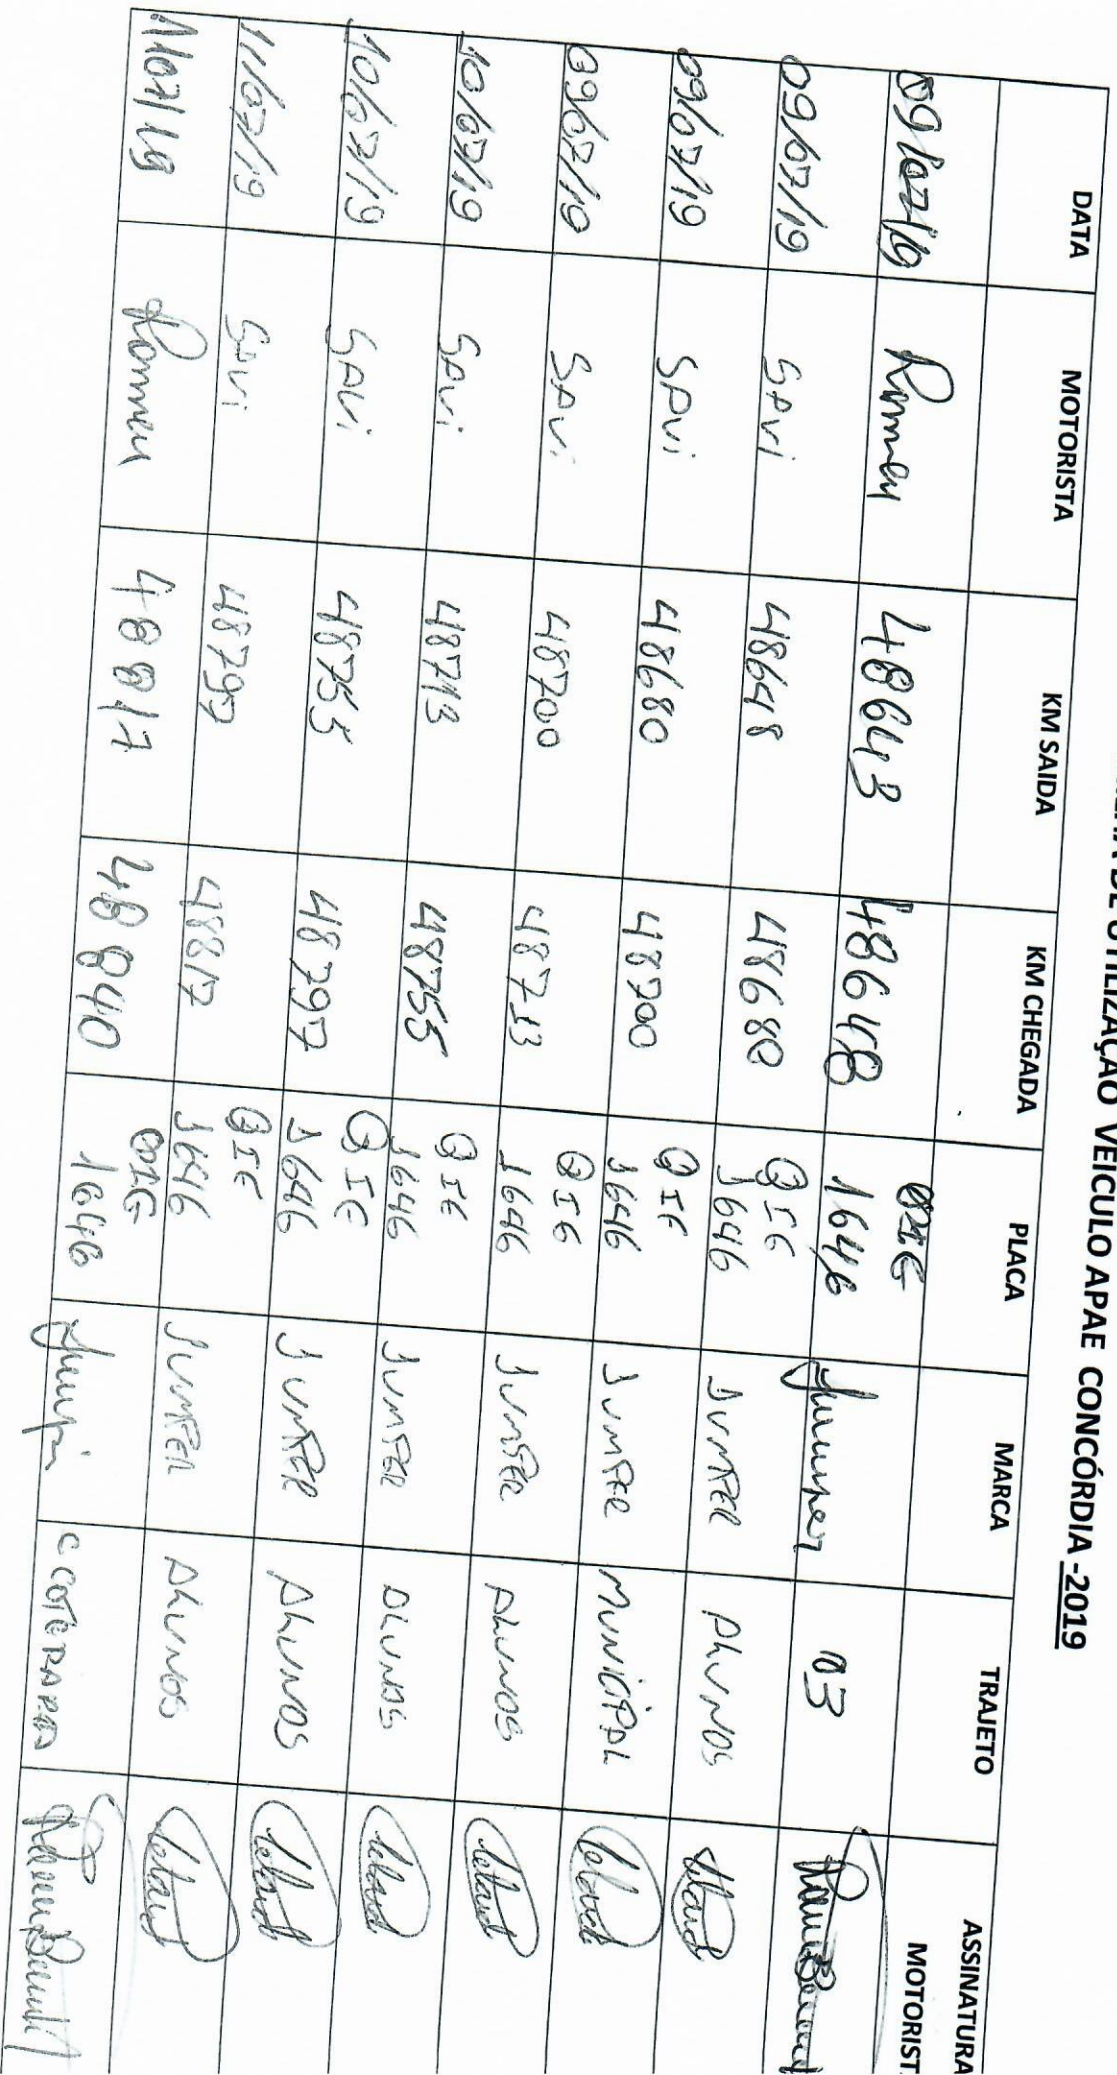 DE UTILIZAÇÃO VEICULO APAE CONCÓRDIA -2019
DATA MOTORISTA KM SAIDA KM CHEGADA PLACA MARCA TRAJETO ASSINATURA
MOTORIST
09/07/19 Romeu 48643 48648 QIE 1646 Jumper 03
09/07/19 SAVI 48648 48680 QIE 1646 JUMPER ALUNOS
09/07/19 SAVI 48680 48700 QIE 1646 JUMPER MUNICIPAL
09/07/19 SAVI 48700 48713 QIE 1646 JUMPER ALUNOS
10/07/19 SAVI 48713 48755 QIE 1646 JUMPER ALUNOS
10/07/19 SAVI 48755 48797 QIE 1646 JUMPER ALUNOS
11/07/19 SAVI 48797 48817 QIE 1646 JUMPER ALUNOS
11/07/19 Romeu 48817 48840 QIE 1646